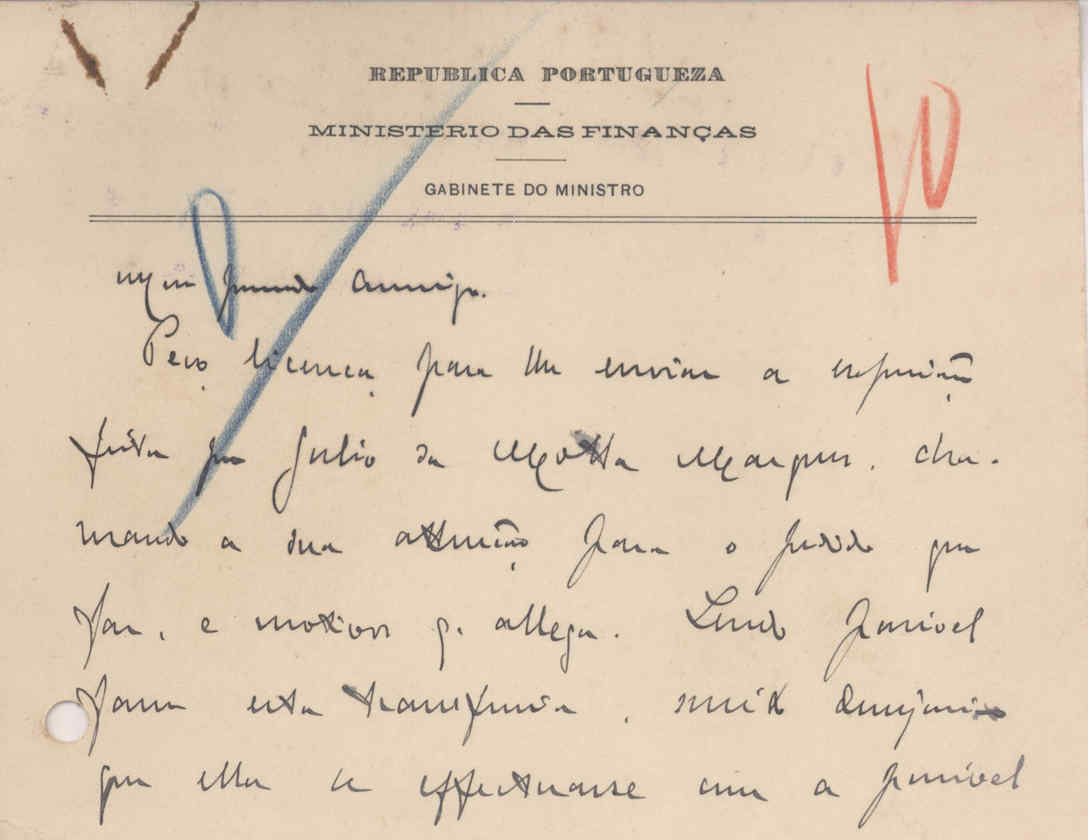 REPUBLICA PORTUGUEZA
MINISTERIO DAS FINANÇAS
GABINETE DO MINISTRO
Meu Presado Amigo.
Peço licença para lhe enviar a exposição
feita por Julio da Motta Marques, cha-
mando a sua attenção para o pedido que
faz, e motivos q. allega. Sendo possivel
fazer esta transferencia, muito desejaria
que ella se effectuasse com a possivel